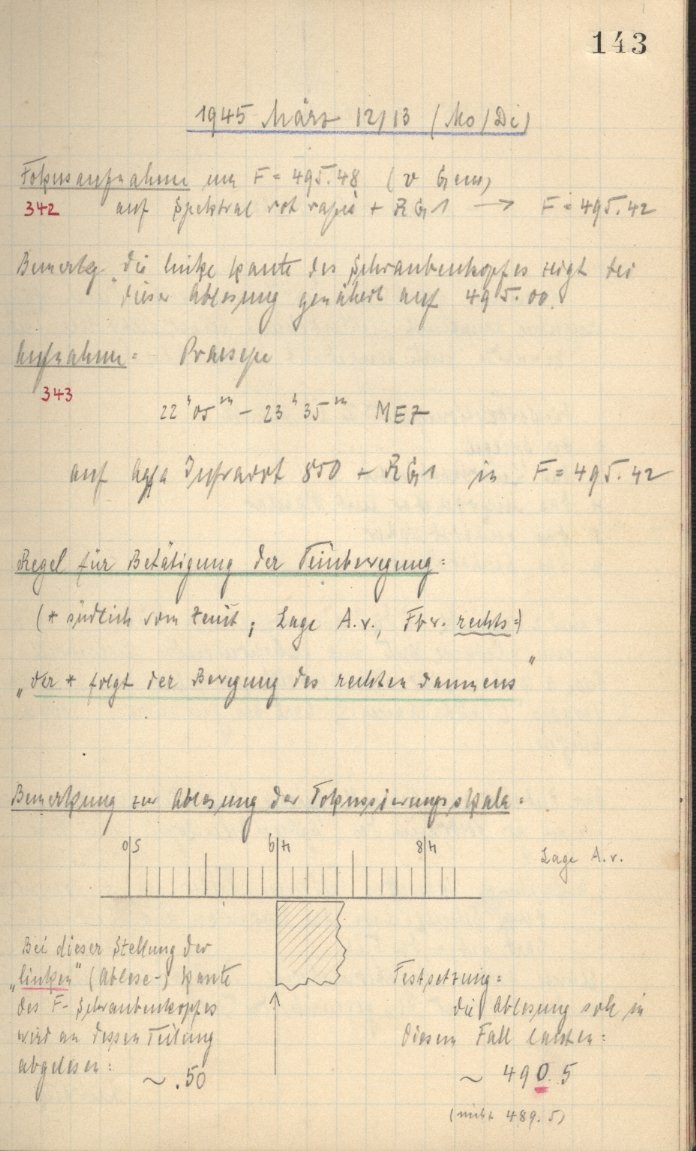 143
1945 März 12/13 (Mo/Di)
Fokusaufnahme um F = 495.48 (v Gem)
342 auf Spektral rot rapid + RG1 → F = 495.42
Bemerkg die linke Kante des Schraubenkopfes zeigt bei
dieser Ablesung genähert auf 495.00.
Aufnahme: Praesepe
343
22ʰ05ᵐ – 23ʰ35ᵐ MEZ
auf Agfa Infrarot 850 + RG1 in F = 495.42
Regel für Betätigung der Feinbewegung:
(* südlich vom Zenit; Lage A.v., Fbw. rechts:)
„Der * folgt der Bewegung des rechten Daumens"
Bemerkung zur Ablesung der Fokussierungsskala:
0|5 9|4 8|4 Lage A.v.
Bei dieser Stellung der
„linken" (Ablese-) Kante
des F-Schraubenkopfes
wird an dessen Teilung
abgelesen:
~ .50
Festsetzung:
die Ablesung soll in
diesem Fall lauten:
~ 490.5
(nicht 489.5)